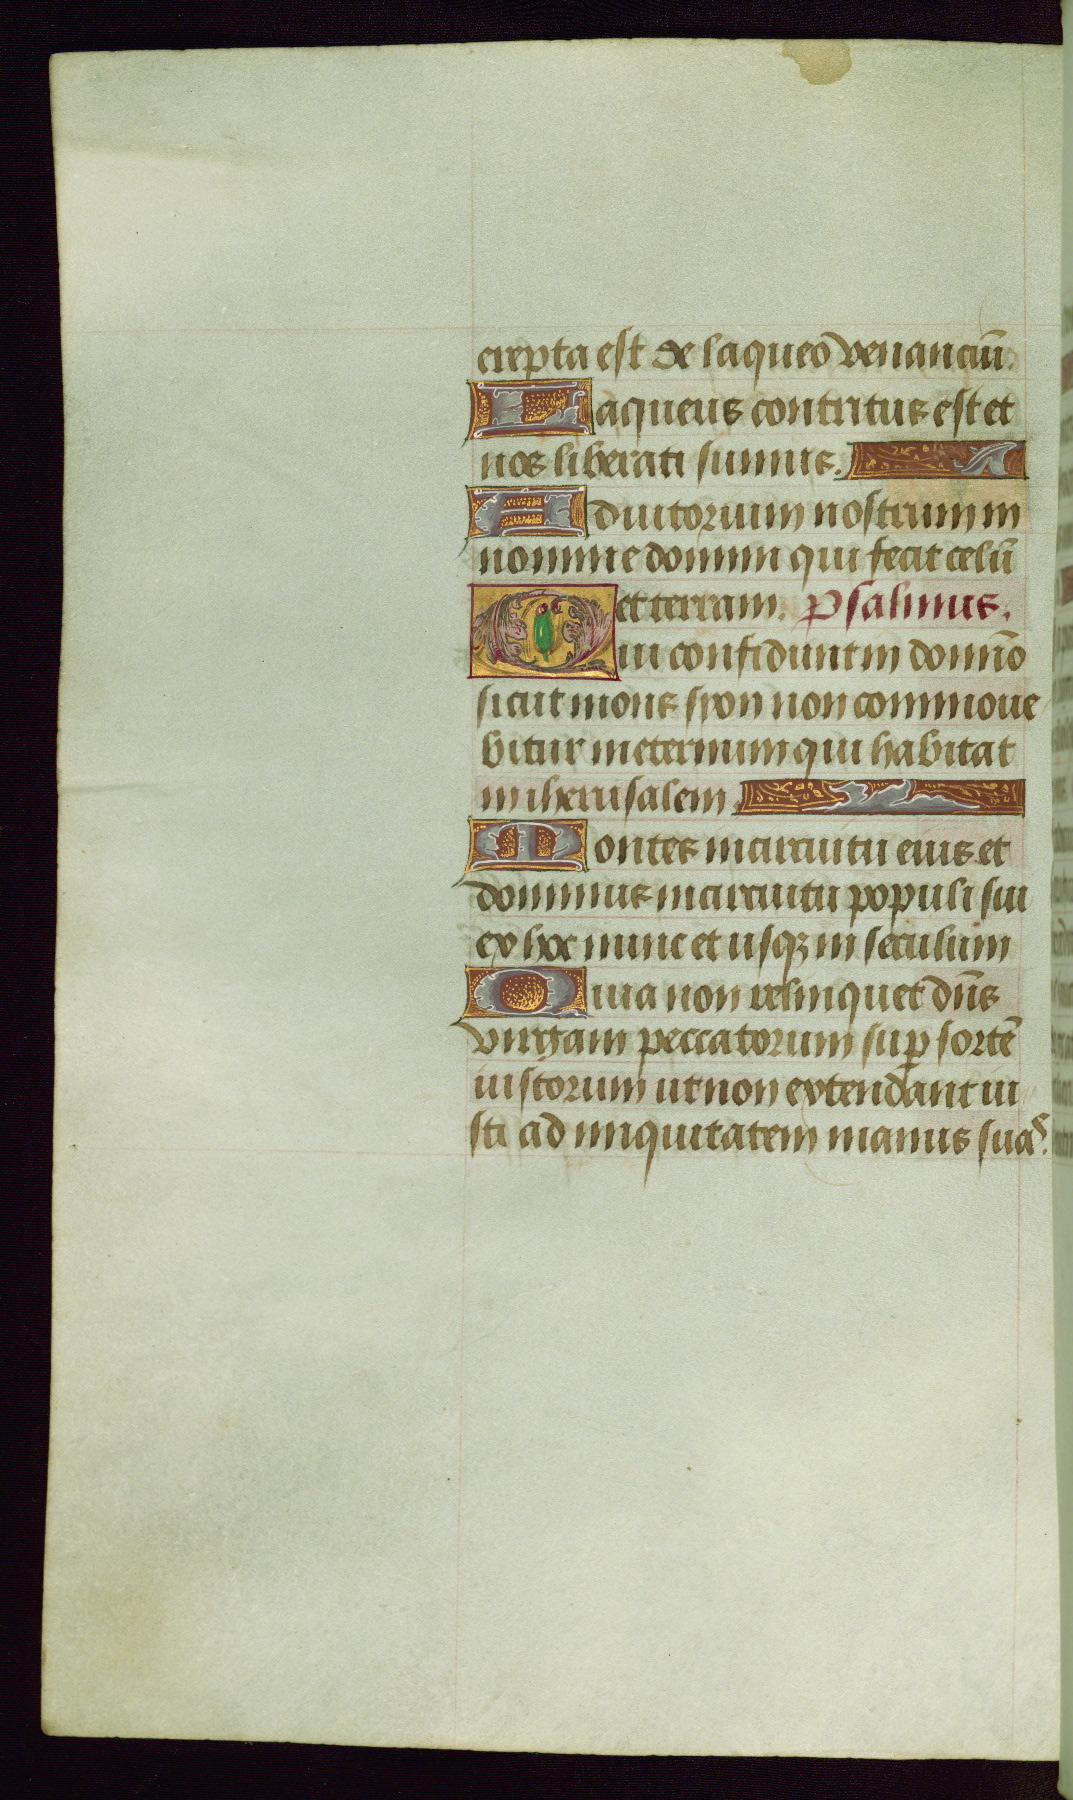 erepta est de laqueo venanciū.
Laqueus contritus est et
nos liberati sumus.
Adiutorium nostrum in
nomine domini qui fecit celū
et terram. Psalmus.
Qui confidunt in domīo
sicut mons syon non commoue
bitur in eternum qui habitat
in iherusalem.
Montes in circuitu eius et
dominus in circuitu populi sui
ex hoc nunc et usqꝫ in seculum
Quia non relinquet dn̄s
virgam peccatorum suꝑ sortē
iustorum ut non extendant iu
sti ad iniquitatem manus suas.